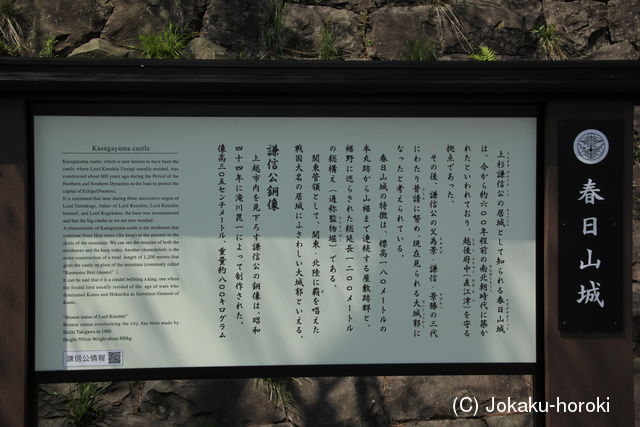 春日山城
上杉謙信公の居城として知られる春日山城
は、今から約六〇〇年程前の南北朝時代に築か
れたといわれており、越後府中(直江津)を守る
拠点であった。
その後、謙信公の父為景・謙信・景勝の三代
にわたり普請に努め、現在見られる大城郭に
なったと考えられている。
春日山城の特徴は、標高一八〇メートルの
本丸跡から山裾まで連続する屋敷跡群と、
裾野に巡らされた総延長一二〇〇メートル
の総構え(通称監物堀)である。
関東管領として、関東・北陸に覇を唱えた
戦国大名の居城にふさわしい大城郭といえる。
謙信公銅像
上越市内を見下ろす謙信公の銅像は、昭和
四十四年に滝川毘一によって制作された。
像高三〇五センチメートル、重量約八〇〇キログラム
Kasugayama castle
Kasugayama castle, which is now known to have been the
castle where Lord Kenshin Uesugi usually resided, was
constructed about 600 years ago during the Period of the
Northern and Southern Dynasties as the base to protect the
capital of Echigo(Naoetsu).
It is estimated that later during three successive reigns of
Lord Tamekage, father of Lord Kenshin, Lord Kenshin
himself, and Lord Kagekatsu, the base was reconstructed
and that the big citadel as we see now resulted.
A characteristic of Kasugayama castle is the residences that
continue from Hon-maru (the keep) at the summit to the
skirts of the mountain. We can see the remains of both the
residences and the keep today. Another characteristic is the
outer construction of a total length of 1,200 meters that
girds the castle on plain of the mountain (commonly called
"Kenmotsu Bori (moats)" ).
It can be said that it is a citadel befitting a king, one where
the feudal lord usually resided of the age of wars who
dominated Kanto and Hokuriku as Governor-General of
Kanto.
"Bronze statue of Lord Kenshin"
Bronze statue overlooking the city, has been made by
Biichi Takigawa in 1969.
Height:305cm Weight:about 800kg
謙信公情報
(C) Jokaku-horoki